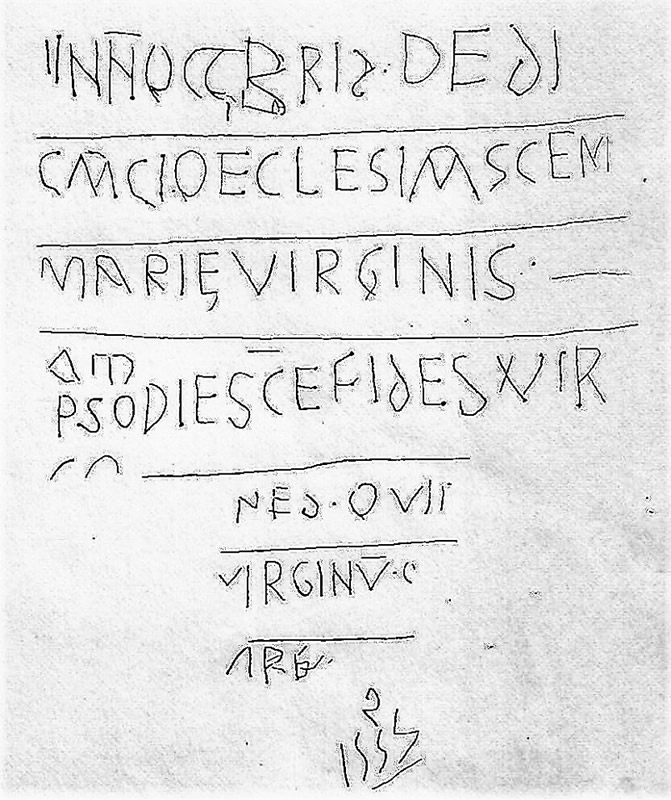 IINN̄OCTBRIS·DEDI
CĀCIOECLESIASCEM̄
MARIĘVIRGINIS·
PSODIESC̄EFIDESVIR
NES·OVII
VIRGINV̄·C
ARE·